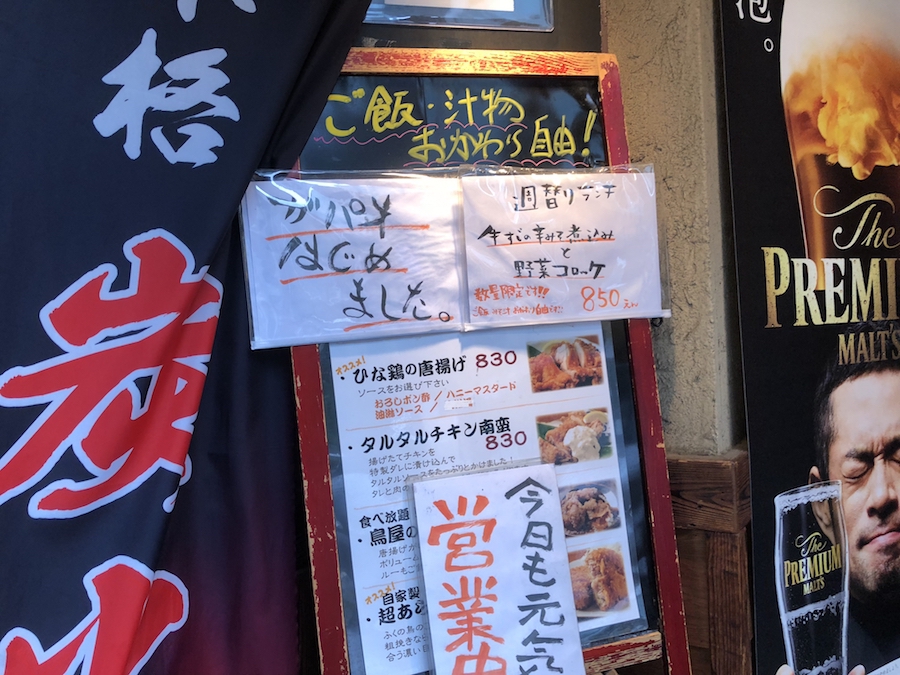 格
炭
火
ご飯・汁物
おかわり自由!
ガパオ
はじめ
ました。
週替りランチ
牛すじの辛みそ煮込み
と
野菜コロッケ
数量限定です!!
850えん
オススメ!
・ひな鶏の唐揚げ 830
ソースをお選び下さい
おろしポン酢 / ハニーマスタード
油淋ソース /
・タルタルチキン南蛮
830
揚げたてチキンを
特製ダレに漬け込んで
タルタルソースをたっぷりとかけました!
タレと肉の
食べ放題
・鳥屋の
唐揚げが
ボリュー
ルーもご
オススメ!
自家製
・超あ
ふくの鳥の
粗挽きな
合う濃い目
今日も元気
営業中
泡。
The
PREMIUM
MALT'S
The
PREMIUM
MALT'S